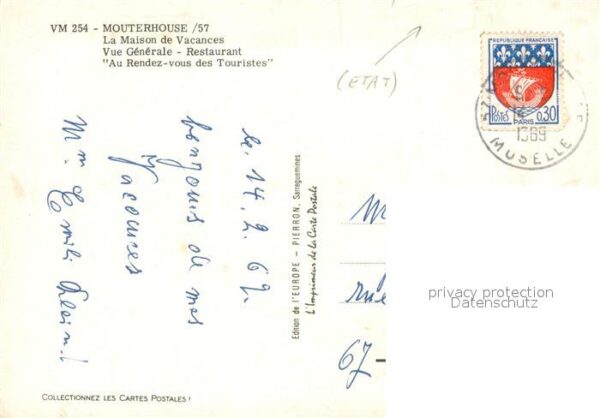 VM 254 - MOUTERHOUSE /57
La Maison de Vacances
Vue Générale - Restaurant
"Au Rendez-vous des Touristes"
(ETAT)
REPUBLIQUE FRANÇAISE
POSTES 0,30
PARIS
1969
MOSELLE
57
le 14.2.69
bonjours de mes
Vacances
Mme Emilie Klein!
Edition de l'EUROPE - PIERRON, Sarreguemines
L'Imprimeur de la Carte Postale
M
rue
67-
privacy protection
Datenschutz
COLLECTIONNEZ LES CARTES POSTALES !